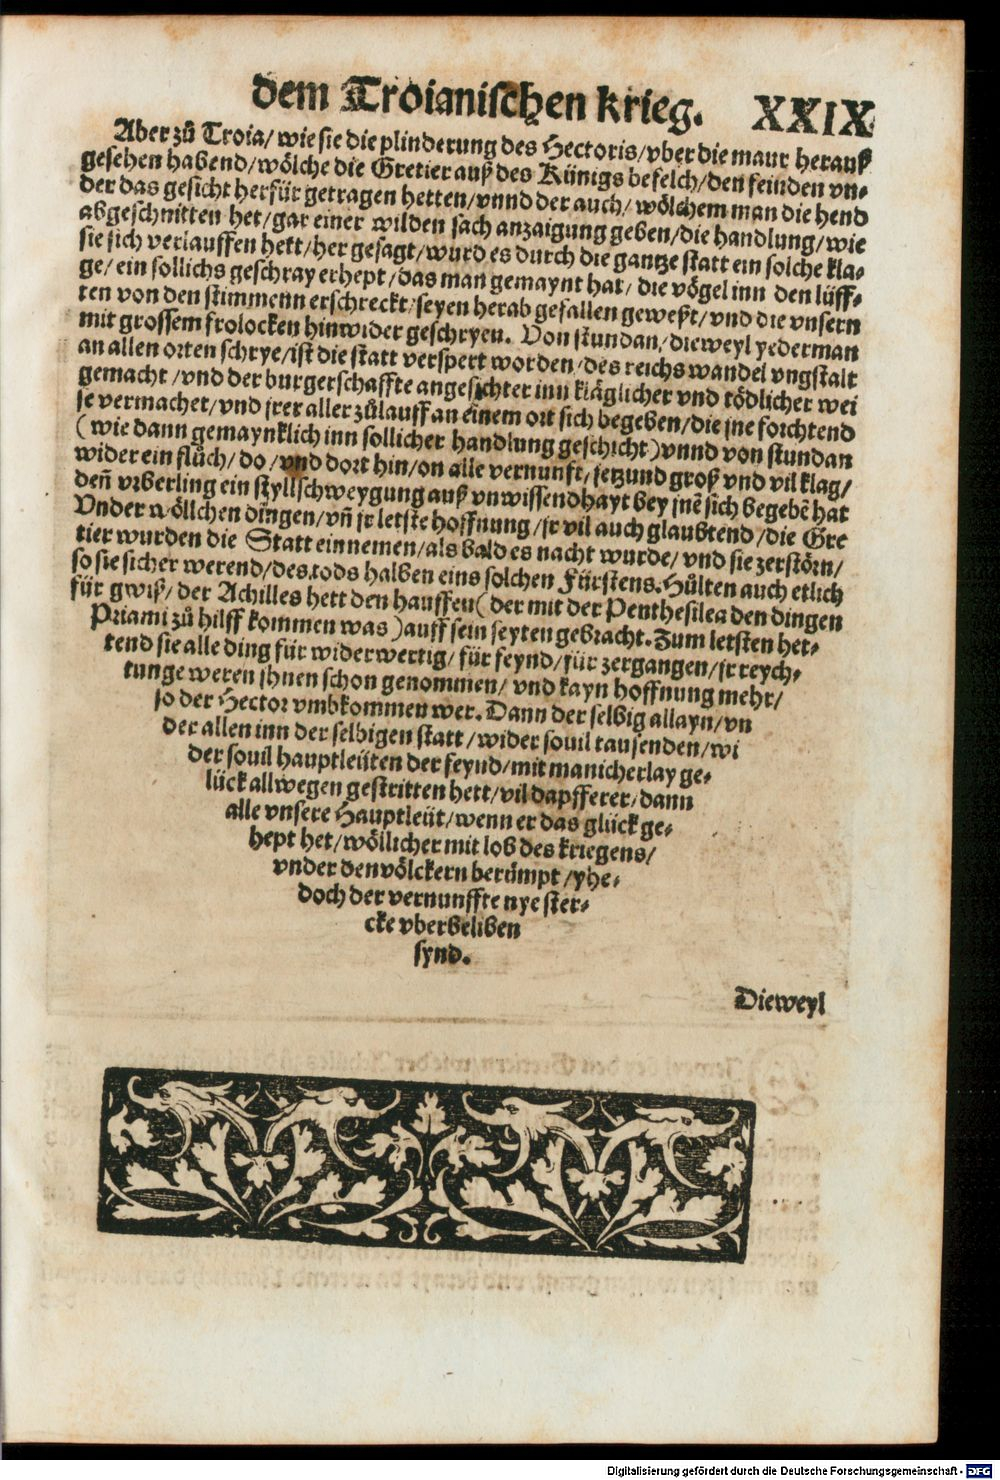 dem Troianischen krieg. XXIX
Aber zů Troia/ wie sie die plinderung des Hectoris/ vber die maur herauß
gesehen habend/ wölche die Gretier auß des Künigs befelch/ den feinden vn-
der das gesicht herfür getragen hetten/ vnnd der auch/ wölchem man die hend
abgeschnitten het/ gar einer wilden sach anzaigung geben/ die handlung/ wie
sie sich verlauffen hett/ her gesagt/ wurd es durch die gantze statt ein solche kla-
ge/ ein sollichs geschray erhept/ das man gemaynt hat/ die vögel inn den lüff-
ten von den stimmenn erschreckt/ seyen herab gefallen geweßt/ vnd die vnsern
mit grossem frolocken hinwider geschryen. Von stundan/ dieweyl yederman
an allen orten schrye/ ist die statt verspert worden/ des reichs wandel vngstalt
gemacht/ vnd der burgerschaffte angesichter inn kläglicher vnd tödlicher wei
se vermachet/ vnd jrer aller zůlauff an einem ort sich begeben/ die jne forchtend
(wie dann gemaynklich inn sollicher handlung geschicht) vnnd von stundan
wider ein flůch/ do/ vnd dort hin/ on alle vernunft/ jetzund groß vnd vil klag/
deñ vrberling ein styllschweygung auß vnwissendhayt bey jnẽ sich begebẽ hat
Vnder wöllchen dingen/ vñ jr letste hoffnung/ jr vil auch glaubtend/ die Gre
tier wurden die Statt einnemen/ als bald es nacht wurde/ vnd sie zerstörn/
so sie sicher werend/ des tods halben eins solchen Fürstens. Hülten auch etlich
für gwiß/ der Achilles hett den hauffen (der mit der Penthesilea den dingen
Priami zů hilff kommen was) auff sein seyten gebracht. Zum letsten het-
tend sie alle ding für widerwertig/ für feynd/ für zergangen/ jr reych-
tunge weren jhnen schon genommen/ vnd kayn hoffnung mehr/
so der Hector vmbkommen wer. Dann der selbig allayn/ vn
der allen inn der selbigen statt/ wider souil tausenden/ wi
der souil hauptleüten der feynd/ mit manicherlay ge-
lück allwegen gestritten hett/ vil dapfferer/ dann
alle vnsere Hauptleüt/ wenn er das glück ge-
hept het/ wöllicher mit lob des kriegens/
vnder den völckern berümpt/ yhe-
doch der vernunffte nye ster-
cke vberbeliben
synd.
Dieweyl
Digitalisierung gefördert durch die Deutsche Forschungsgemeinschaft - DFG